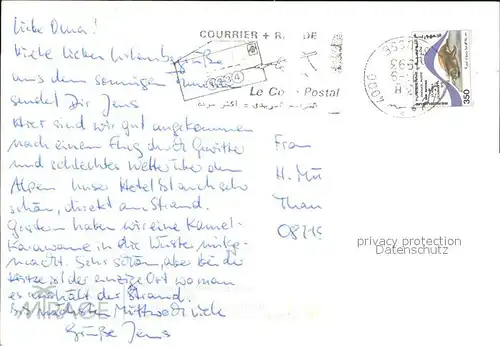 Liebe Oma!
Viele lieben Urlaubsgrüße
aus dem sonnigen Tunesien
sendet Dir Jens
Hier sind wir gut angekommen
nach einem Flug durch Gewitter
und schlechtes Wetter über den
Alpen. Unser Hotel ist auch sehr
schön, direkt am Strand.
Gestern haben wir eine Kamel-
Karawane in die Wüste mitge-
macht. Sehr schön, aber bei der
Hitze ist der einzige Ort wo man
es aushält der Strand.
Bis nächsten Mittwoch
Grüße Jens
MIRAGE
COURRIER + R DE
Le Co Postal
SOUSSE
4000
350
Frau
H. Mü
Than
privacy protection
www.ansichtskarten-center.de